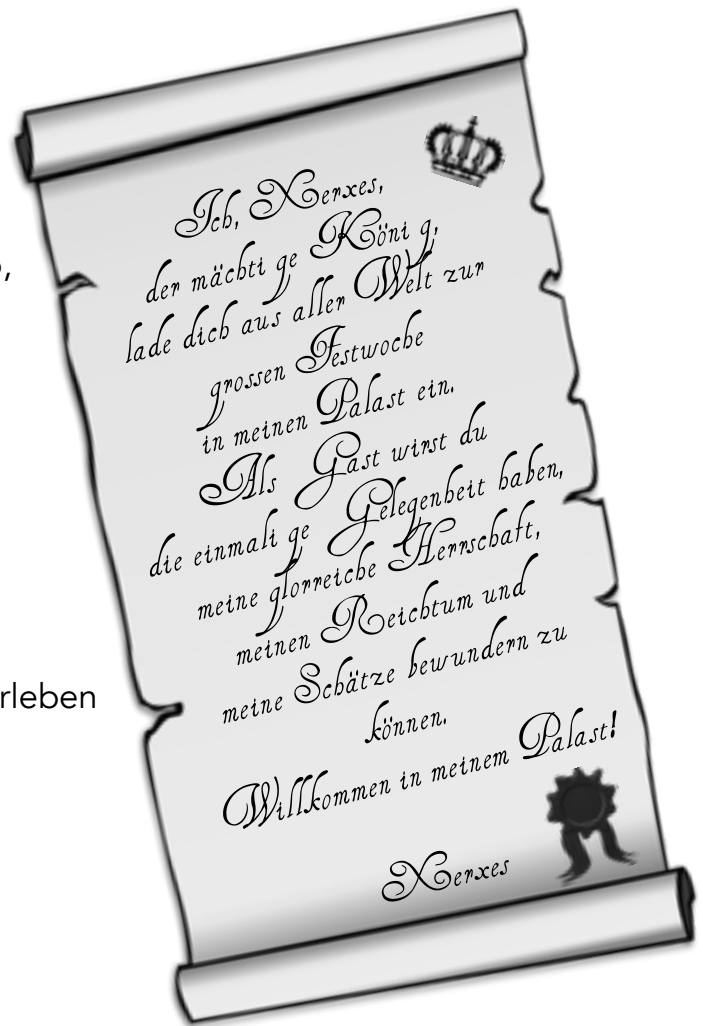 Ich, Xerxes,
der mächtige König,
lade dich aus aller Welt zur
grossen Festwoche
in meinen Palast ein.
Als Gast wirst du
die einmalige Gelegenheit haben,
meine glorreiche Herrschaft,
meinen Reichtum und
rleben
meine Schätze bewundern zu
können.
Willkommen in meinem Palast!
Xerxes